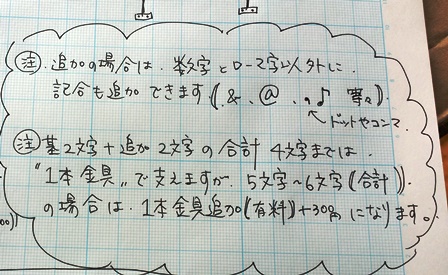 ㊟ 追加の場合は、数字とローマ字以外に、
記合も追加できます(. & . @ . 。♪ 等々).
↖ドットやコンマ.
㊟ 基2文字+追加2文字の合計 4文字までは、
"1本金具"で支えますが、5文字~6文字(合計)
の場合は、1本金具追加(有料)+300円になります。
00)